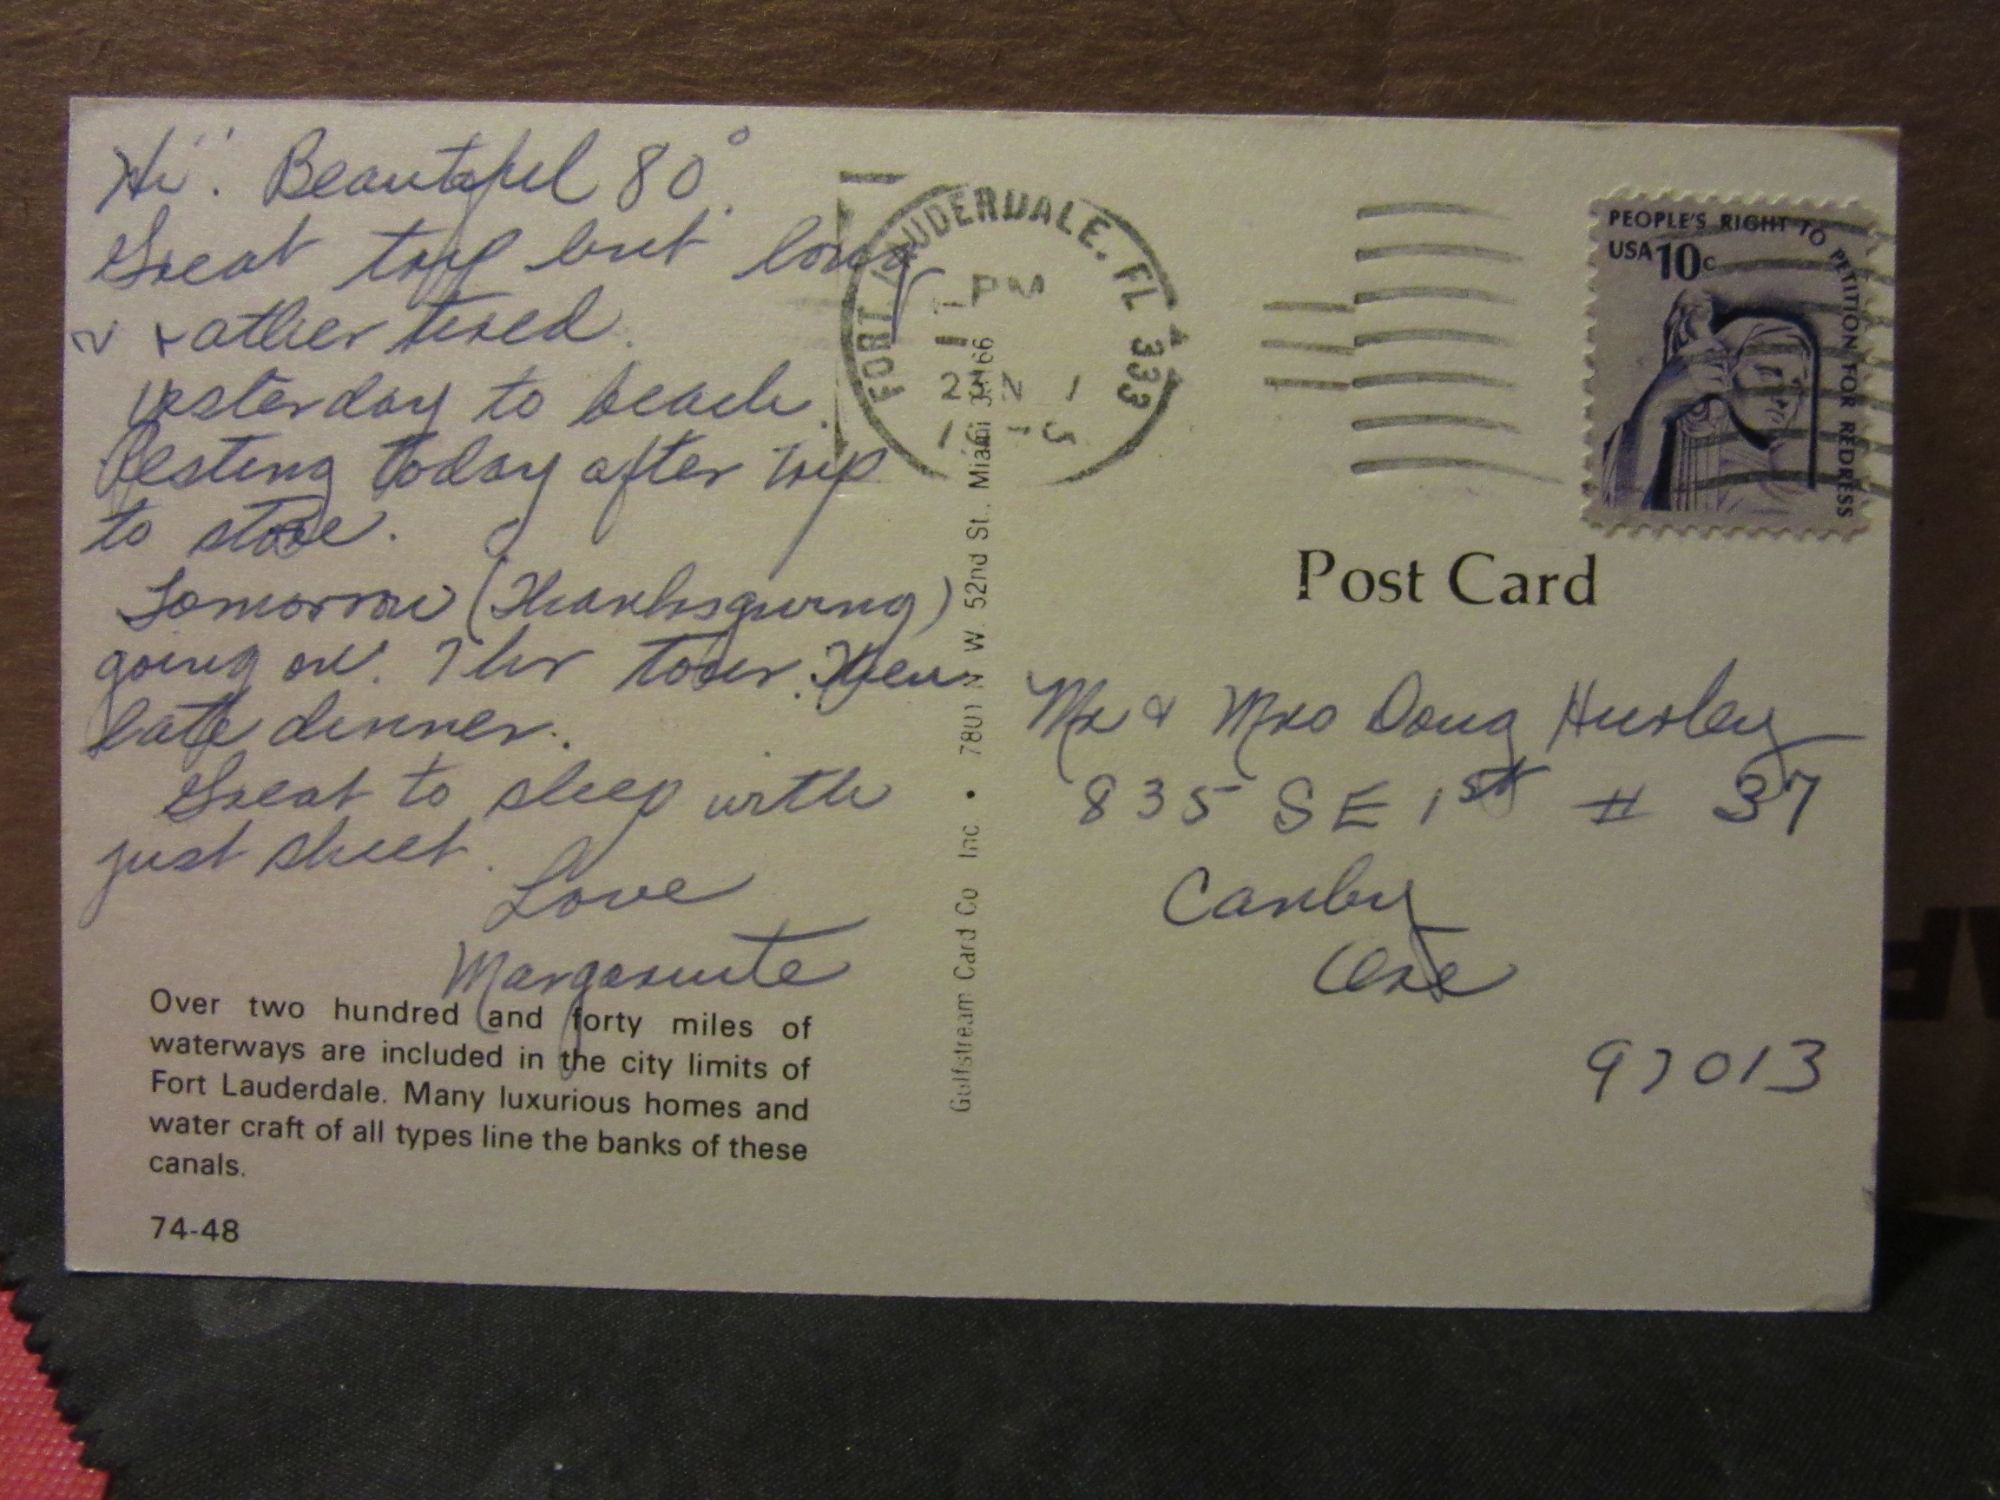 Hi! Beautiful 80°.
Great trip but long
& rather tired.
Yesterday to beach.
Resting today after trip
to store.
Tomorrow (Thanksgiving)
going on 7 hr tour. Then
late dinner.
Great to sleep with
just sheet.
Love
Marguerite
Over two hundred and forty miles of
waterways are included in the city limits of
Fort Lauderdale. Many luxurious homes and
water craft of all types line the banks of these
canals.
74-48
Gulfstream Card Co Inc. • 7801 N W. 52nd St., Miami 33166
FORT LAUDERDALE, FL 333
PM
PEOPLE'S RIGHT TO PETITION FOR REDRESS
USA 10c
Post Card
Mr & Mrs Doug Hurley
835 SE 1st # 37
Canby
Ore
97013